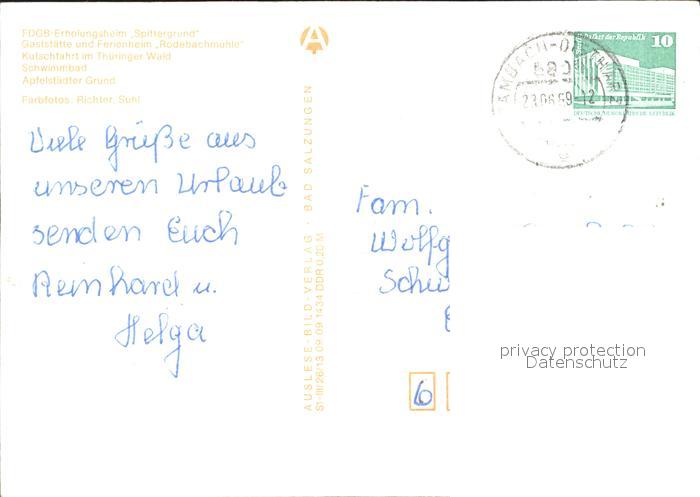 FDGB-Erholungsheim „Spittergrund"
Gaststätte und Ferienheim „Rodebachmühle"
Kutschfahrt im Thüringer Wald
Schwimmbad
Apfelstädter Grund
Farbfotos: Richter, Suhl
Viele Grüße aus
unseren Urlaub
senden Euch
Reinhard u.
Helga
AUSLESE-BILD-VERLAG · BAD SALZUNGEN
S1-III/26/13 09 09 1434 DDR 0,20 M
Palast der Republik 10
DEUTSCHE DEMOKRATISCHE REPUBLIK
Fam.
Wolfg
Schu
6
privacy protection
Datenschutz